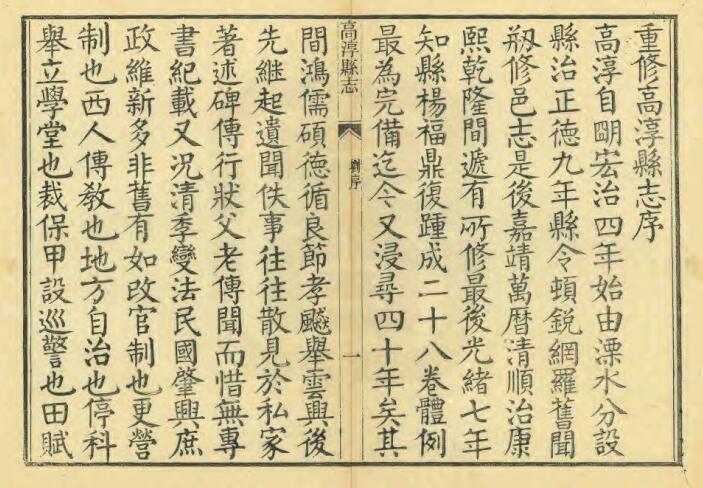 重修高淳縣志序
高淳自明宏治四年始由溧水分設
縣治正德九年縣令頓銳網羅舊聞
剏修邑志是後嘉靖萬曆清順治康
熙乾隆間遞有所修最後光緒七年
知縣楊福鼎復踵成二十八卷體例
最為完備迄今又浸尋四十年矣其
高淳縣志
劉序
一
間鴻儒碩德循良節孝飇舉雲興後
先繼起遺聞佚事往往散見於私家
著述碑傳行狀父老傳聞而惜無專
書紀載又況清季變法民國肇興庶
政維新多非舊有如改官制也更營
制也西人傳教也地方自治也停科
舉立學堂也裁保甲設巡警也田賦